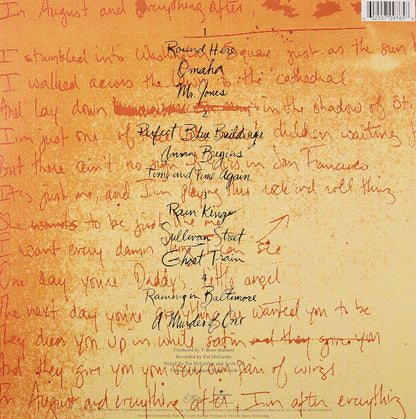 In August and everything after
1
I stumbled into Washington Square just as the sun
Round Here
Omaha
I walked across the to the cathedral
Mr. Jones
And lay down in the shadow of St
2
I'm just one of children waiting
Perfect Blue Buildings
Anna Begins
But there ain't no in San Francisco
Time and Time Again
It's just me and I'm playing this rock and roll thing
3
Rain King
She wants to be just like me
Sullivan Street
I want every damn thing I can see
Ghost Train
One day you're Daddy's little angel
4
Raining in Baltimore
The next day you're wanted you to be
A Murder of One
They dress you up in white satin
Produced by T-Bone Burnett
Recorded by Pat McCarthy
Mixed by Pat McCarthy and Scott
And they give you your very own pair of wings
In August and everything after I'm after everything